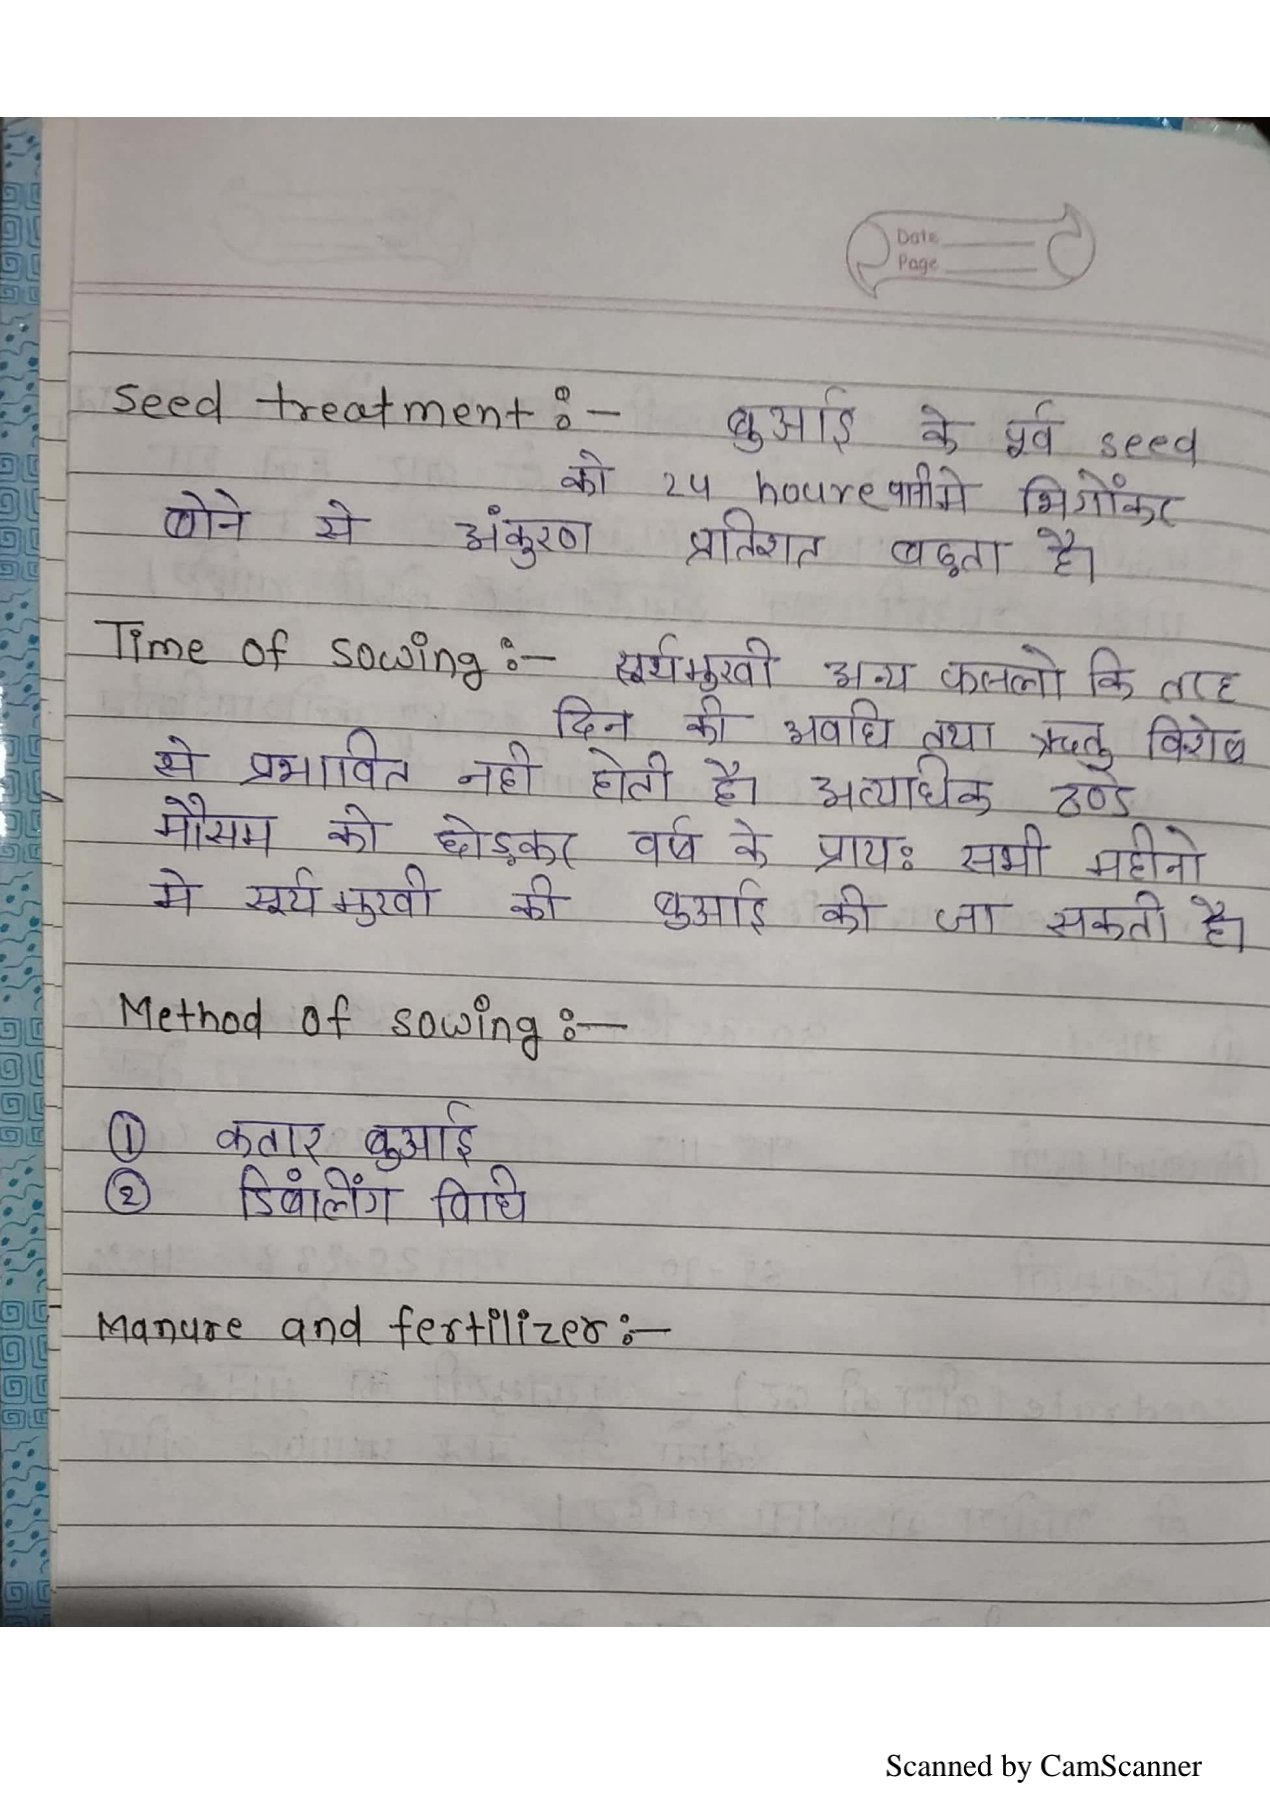 Date
Page
Seed treatment :- बुआई के पूर्व seed
को 24 houre पानी मे भिगोंकर
बोने से अंकुरण प्रतिशत बढ़ता है।
Time of sowing :- सूर्यमुखी अन्य फसलो कि तरह
दिन की अवधि तथा ऋतु विशेष
से प्रभावित नही होती है। अत्याधिक ठण्डे
मौसम को छोड़कर वर्ष के प्रायः सभी महीनो
मे सूर्यमुखी की बुआई की जा सकती है।
Method of sowing :-
① कतार बुआई
② डिबंलिंग विधि
Manure and fertilizer :-
Scanned by CamScanner